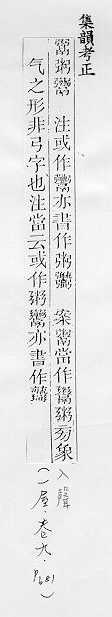 集韻考正
注或作鬻亦書作粥 案鬻當作鬻粥象
气之形非弓字也注當云或作粥鬻亦書作
入聲
(一屋·卷九·P681)